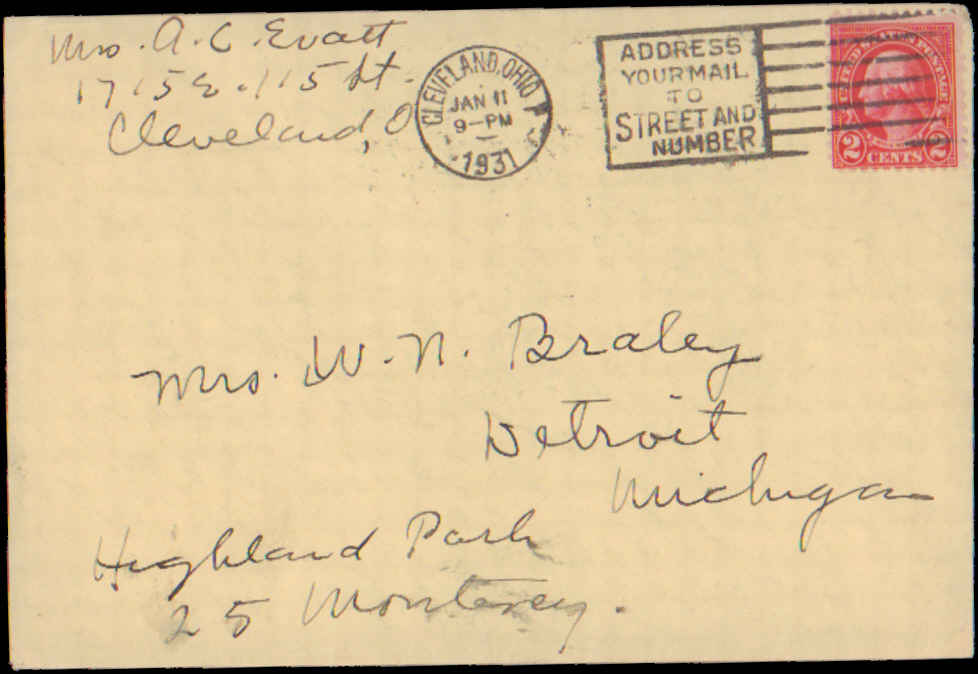 Mrs. A. C. Evatt
1715 E. 115 St.
Cleveland, O
CLEVELAND, OHIO
JAN 11
9-PM
1931
ADDRESS
YOUR MAIL
TO
STREET AND
NUMBER
UNITED STATES POSTAGE
2 CENTS 2
Mrs. W. N. Braley
Detroit
Michigan
Highland Park
25 Monterey.